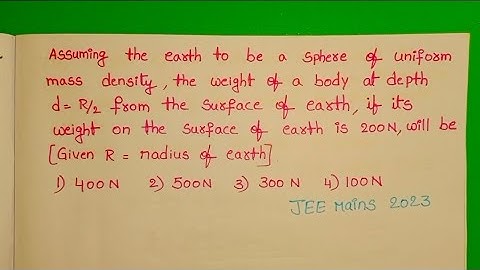 Assuming the earth to be a sphere of uniform
mass density, the weight of a body at depth
d = R/2 from the surface of earth, if its
weight on the surface of earth is 200N, will be
[Given R = radius of earth]
1) 400 N 2) 500N 3) 300 N 4) 100N
JEE Mains 2023